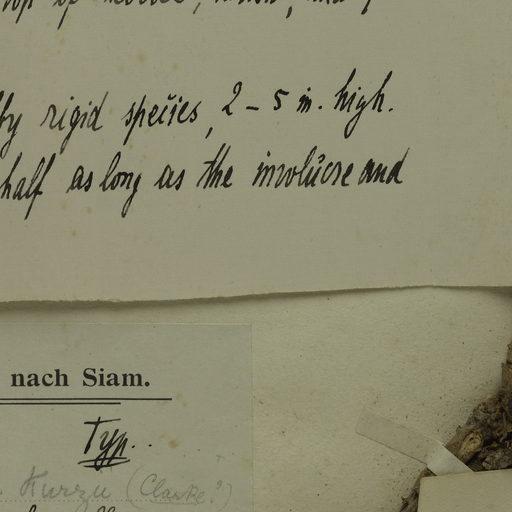 top of
by rigid species, 2 - 5 in. high.
half as long as the involucre and
nach Siam.
Typ.
Kurzii (Clarke?)